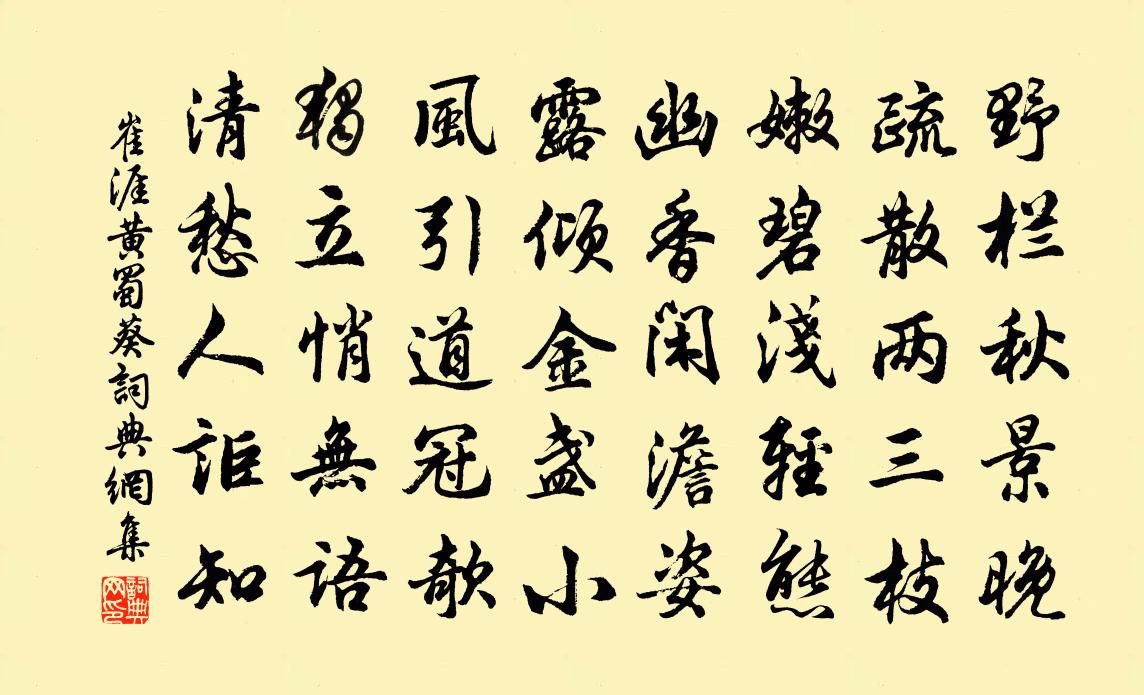 野栏秋景晚
疏散两三枝
嫩碧淺輕態
幽香閑澹姿
露傾金盞小
風引道冠欹
獨立悄無語
清愁人詎知
崔涯黄蜀葵詞典網集
詞典网印